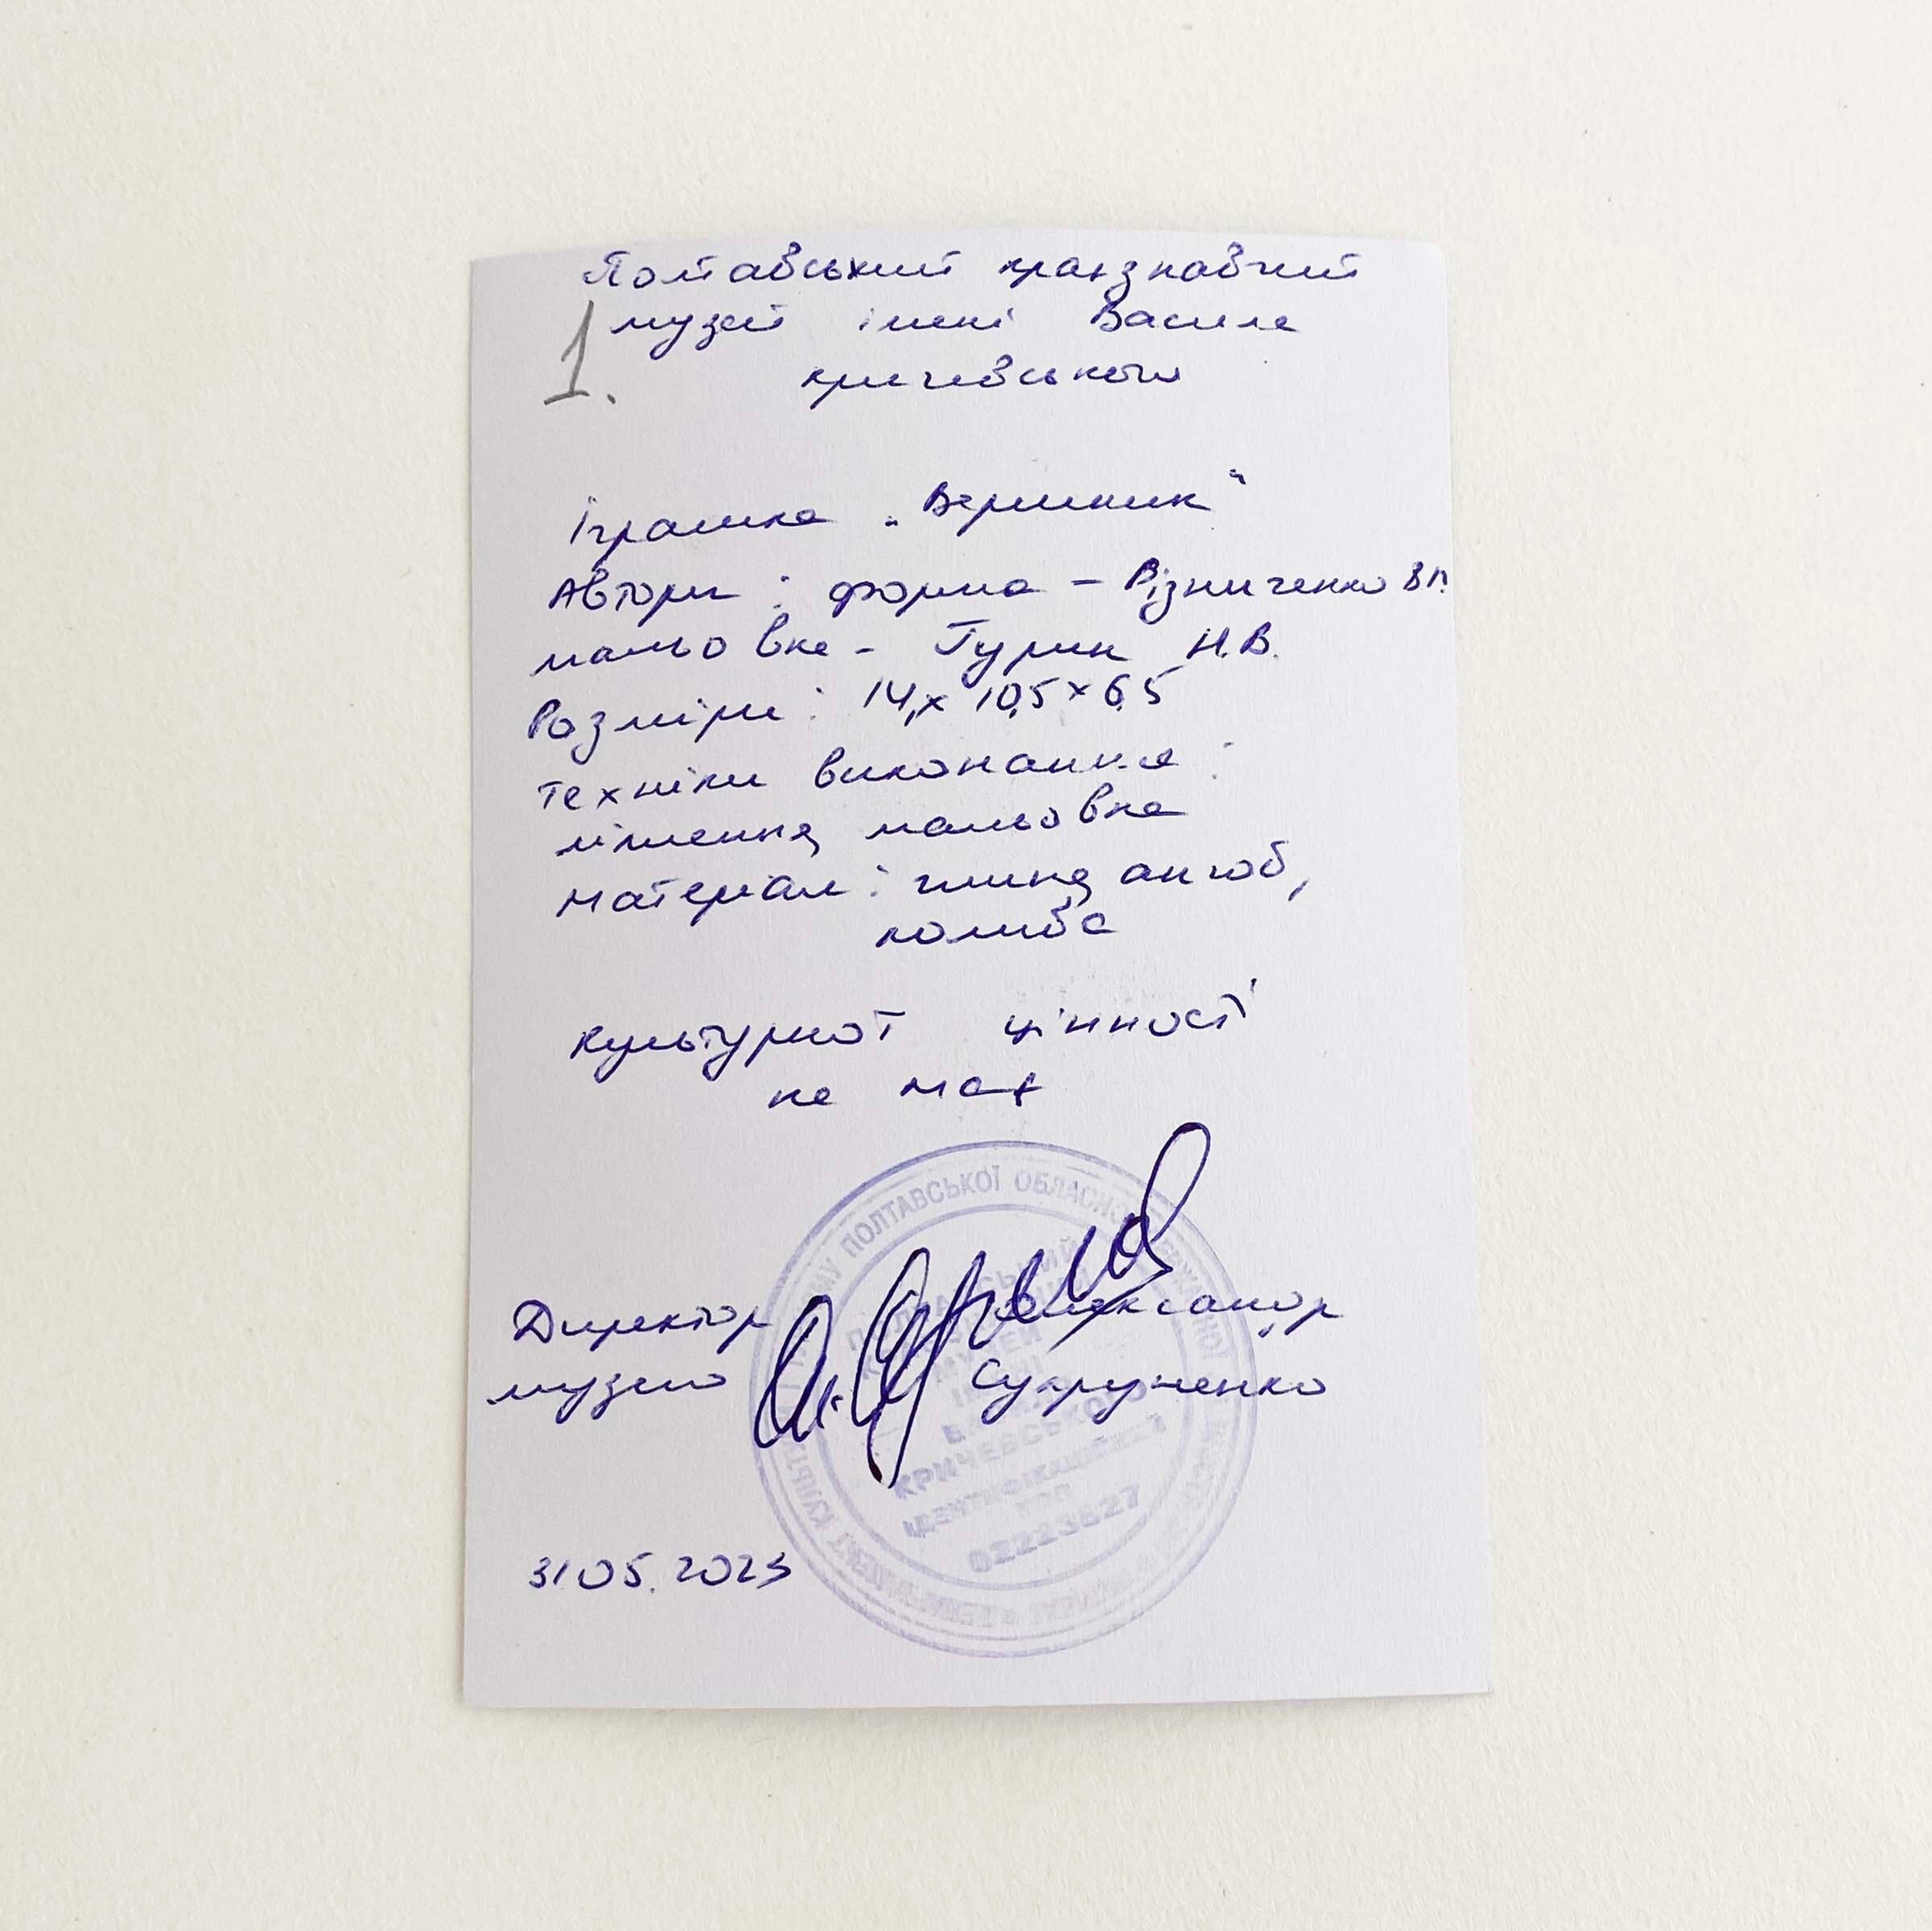 Полтавський краєзнавчий
1. музей імені Василя
Кричевського
Іграшка „Вершник“
Автори: форма – Різниченко В.П.
мальовка – Гурин Н.В.
Розміри: 14,х 10,5 х 6,5
Техніки виконання:
ліплення, мальовка
Матеріал: глина, ангоб,
полива
Культурної цінності
не має
Директор Олександр
музею Супруненко
31.05.2023
ПОЛТАВСЬКОЇ ОБЛАСНОЇ
МУЗЕЙ
КРИЧЕВСЬКОГО
ІДЕНТИФІКАЦІЙНИЙ
КОД
02223527